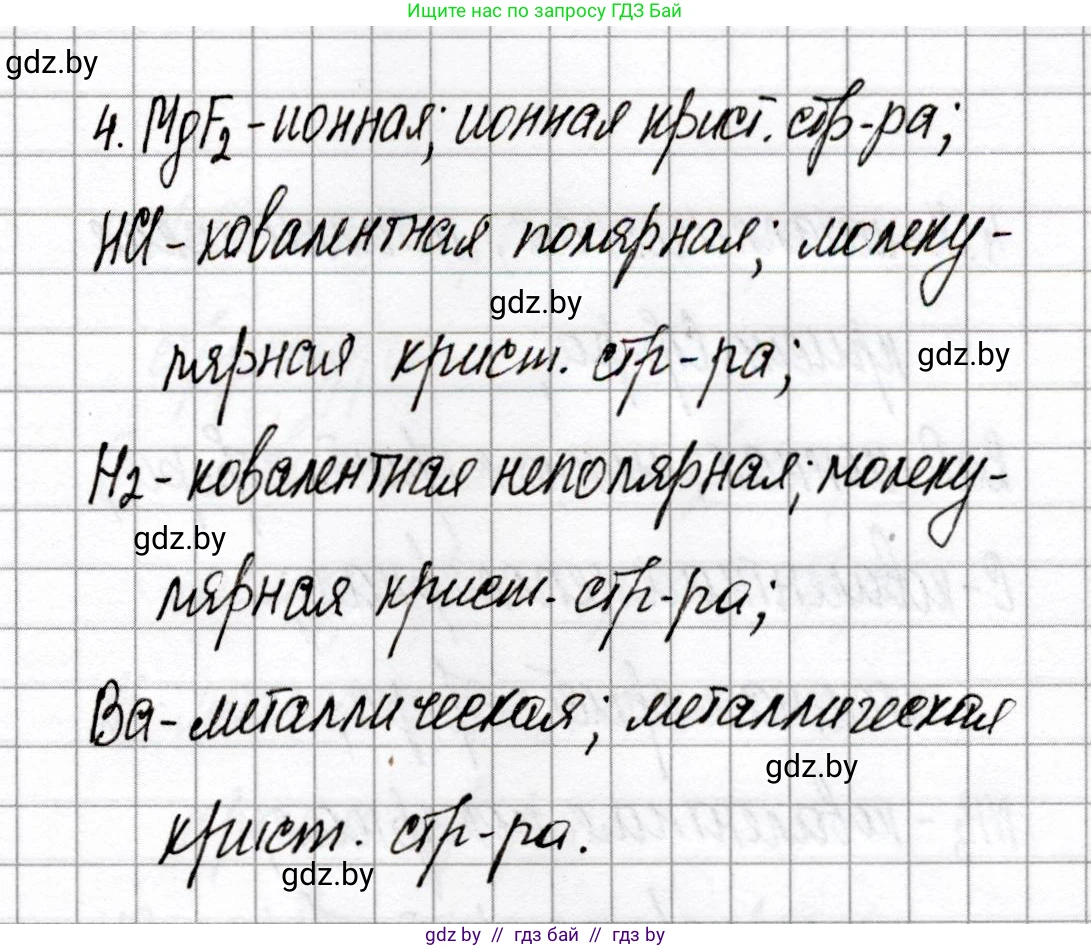 Ищите нас по запросу ГДЗ Бай
gdz.by
4. MgF₂ - ионная; ионная крист. стр-ра;
HCl - ковалентная полярная; молеку-
gdz.by
лярная крист. стр-ра;
gdz.by
H₂ - ковалентная неполярная; молеку-
gdz.by
лярная крист. стр-ра;
Ba - металлическая; металлическая
gdz.by
крист. стр-ра.
gdz.by
gdz.by // гдз бай // гдз by